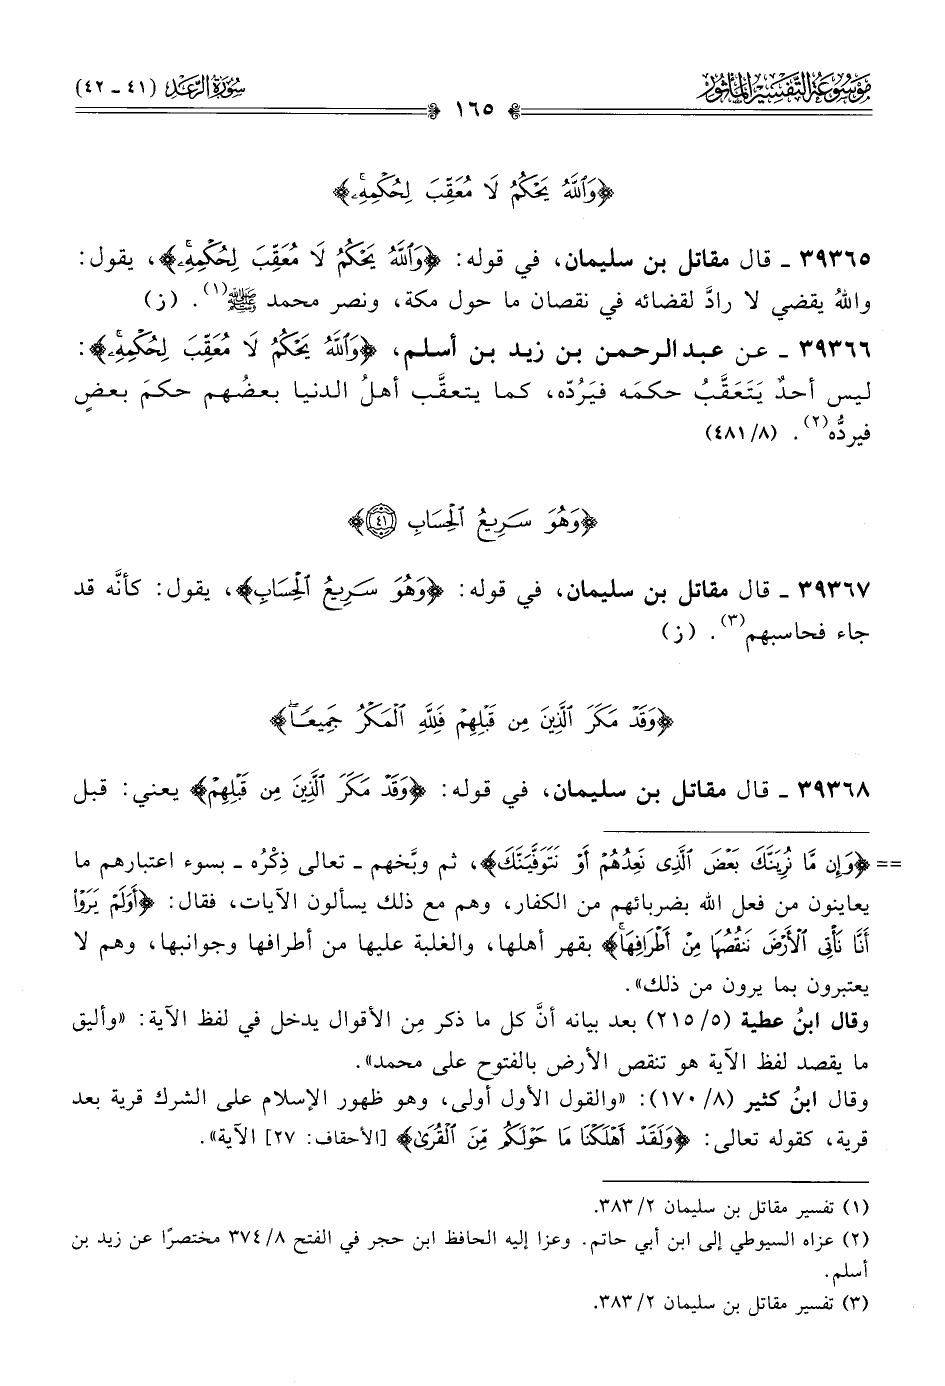 مَوْسُوعَة التَّفْسِيْرِ المَأْثُور
سُورَةُ الرَّعْدِ (٤١ - ٤٢)
١٦٥
﴿وَٱللَّهُ يَحۡكُمُ لَا مُعَقِّبَ لِحُكۡمِهِۦۚ﴾
٣٩٣٦٥ ـ قال مقاتل بن سليمان، في قوله: ﴿وَٱللَّهُ يَحۡكُمُ لَا مُعَقِّبَ لِحُكۡمِهِۦۚ﴾، يقول:
واللهُ يقضي لا رادَّ لقضائه في نقصان ما حول مكة، ونصر محمد ﷺ(١). (ز)
٣٩٣٦٦ ـ عن عبد الرحمن بن زيد بن أسلم، ﴿وَٱللَّهُ يَحۡكُمُ لَا مُعَقِّبَ لِحُكۡمِهِۦۚ﴾:
ليس أحدٌ يَتَعَقَّبُ حكمَه فيَرُدّه، كما يتعقَّب أهلُ الدنيا بعضُهم حكمَ بعضٍ
فيردُّه(٢). (٤٨١/٨)
﴿وَهُوَ سَرِيعُ ٱلۡحِسَابِ ٤١﴾
٣٩٣٦٧ ـ قال مقاتل بن سليمان، في قوله: ﴿وَهُوَ سَرِيعُ ٱلۡحِسَابِ﴾، يقول: كأنَّه قد
جاء فحاسبهم(٣). (ز)
﴿وَقَدۡ مَكَرَ ٱلَّذِينَ مِن قَبۡلِهِمۡ فَلِلَّهِ ٱلۡمَكۡرُ جَمِيعٗاۖ﴾
٣٩٣٦٨ ـ قال مقاتل بن سليمان، في قوله: ﴿وَقَدۡ مَكَرَ ٱلَّذِينَ مِن قَبۡلِهِمۡ﴾ يعني: قبل
== ﴿وَإِن مَّا نُرِيَنَّكَ بَعۡضَ ٱلَّذِي نَعِدُهُمۡ أَوۡ نَتَوَفَّيَنَّكَ﴾، ثم وبَّخهم ـ تعالى ذِكْرُه ـ بسوء اعتبارهم ما
يعاينون من فعل الله بضربائهم من الكفار، وهم مع ذلك يسألون الآيات، فقال: ﴿أَوَلَمۡ يَرَوۡاْ
أَنَّا نَأۡتِي ٱلۡأَرۡضَ نَنقُصُهَا مِنۡ أَطۡرَافِهَاۚ﴾ بقهر أهلها، والغلبة عليها من أطرافها وجوانبها، وهم لا
يعتبرون بما يرون من ذلك».
وقال ابنُ عطية (٢١٥/٥) بعد بيانه أنَّ كل ما ذكر مِن الأقوال يدخل في لفظ الآية: «وأليق
ما يقصد لفظ الآية هو تنقص الأرض بالفتوح على محمد».
وقال ابنُ كثير (١٧٠/٨): «والقول الأول أولى، وهو ظهور الإسلام على الشرك قرية بعد
قرية، كقوله تعالى: ﴿وَلَقَدۡ أَهۡلَكۡنَا مَا حَوۡلَكُم مِّنَ ٱلۡقُرَىٰ﴾ [الأحقاف: ٢٧] الآية».
(١) تفسير مقاتل بن سليمان ٣٨٣/٢.
(٢) عزاه السيوطي إلى ابن أبي حاتم. وعزا إليه الحافظ ابن حجر في الفتح ٣٧٤/٨ مختصرًا عن زيد بن
أسلم.
(٣) تفسير مقاتل بن سليمان ٣٨٣/٢.